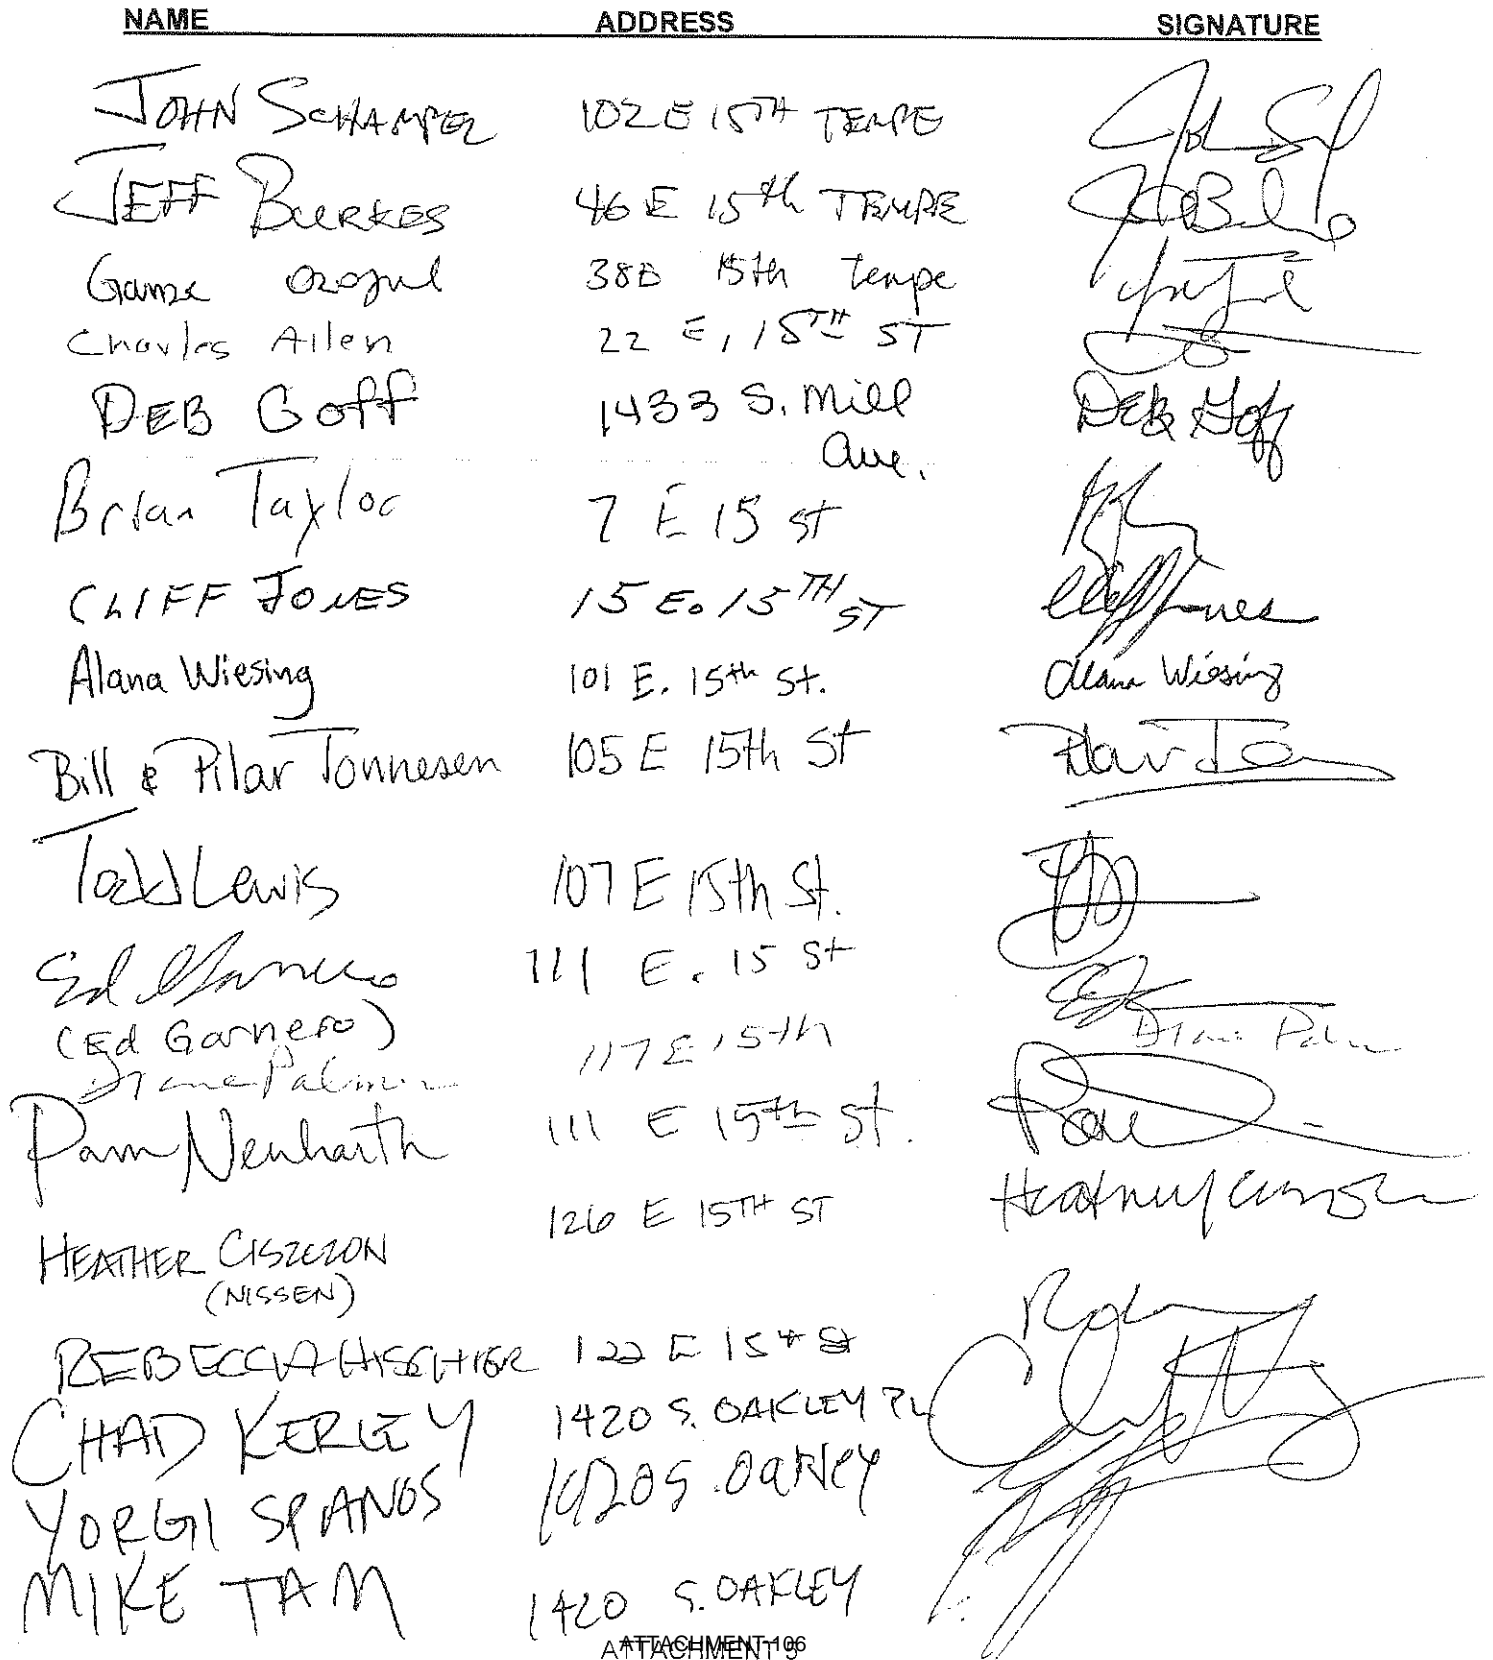 NAME ADDRESS SIGNATURE
JOHN SCHAMPEL 102 E 15TH TEMPE
JEFF BURKES 46 E 15th TEMPE
Gamze Ozogul 38E 15th Tempe
Charles Allen 22 E, 15TH ST
DEB GOFF 1433 S. Mill Deb Goff
Ave.
Brian Taylor 7 E 15 st
CLIFF JONES 15 E. 15TH ST Cliff Jones
Alana Wiesing 101 E. 15th St. Alana Wiesing
Bill & Pilar Tonnesen 105 E 15th St
Todd Lewis 107 E 15th St.
Ed Garnero 111 E. 15 St
(Ed Garnero)
Diane Palmer 117 E 15th Diane Palmer
Pam Neuharth 111 E 15th St.
HEATHER CISZCZON 126 E 15TH ST
(NISSEN)
REBECCA HISCHIER 122 E 15th St
CHAD KERLEY 1420 S. OAKLEY PL
YORGI SPANOS 1420 S. Oakley
MIKE TAM 1420 S. OAKLEY
ATTACHMENT 106
ATTACHMENT 5